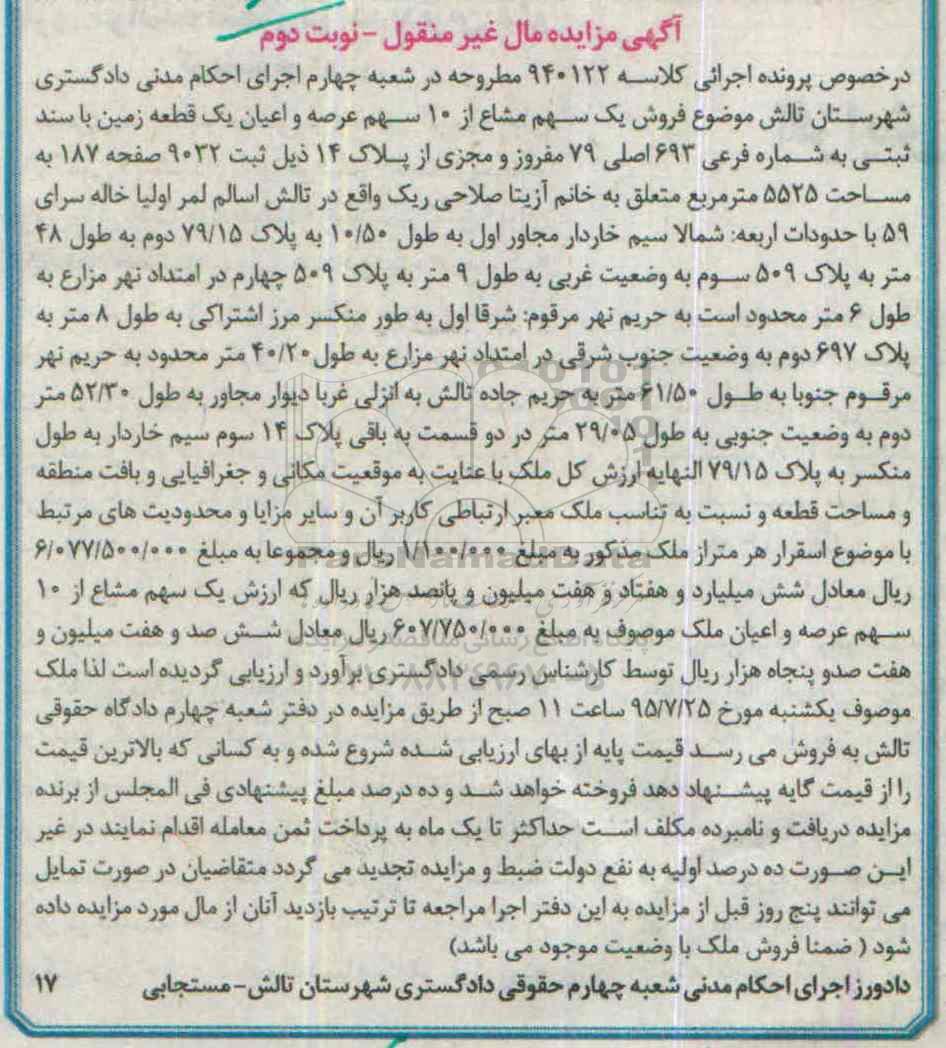 آگهی مزایده مال غیر منقول - نوبت دوم
درخصوص پرونده اجرائی کلاسه ۹۴۰۱۲۲ مطروحه در شعبه چهارم اجرای احکام مدنی دادگستری
شهرستان تالش موضوع فروش یک سهم مشاع از ۱۰ سهم عرصه و اعیان یک قطعه زمین با سند
ثبتی به شماره فرعی ۶۹۳ اصلی ۷۹ مفروز و مجزی از پلاک ۱۴ ذیل ثبت ۹۰۳۲ صفحه ۱۸۷ به
مساحت ۵۵۲۵ مترمربع متعلق به خانم آزیتا صلاحی ریک واقع در تالش اسالم لمر اولیا خاله سرای
۵۹ با حدودات اربعه: شمالا سیم خاردار مجاور اول به طول ۱۰/۵۰ به پلاک ۷۹/۱۵ دوم به طول ۴۸
متر به پلاک ۵۰۹ سوم به وضعیت غربی به طول ۹ متر به پلاک ۵۰۹ چهارم در امتداد نهر مزارع به
طول ۶ متر محدود است به حریم نهر مرقوم: شرقا اول به طور منکسر مرز اشتراکی به طول ۸ متر به
پلاک ۶۹۷ دوم به وضعیت جنوب شرقی در امتداد نهر مزارع به طول ۴۰/۲۰ متر محدود به حریم نهر
مرقوم جنوبا به طول ۶۱/۵۰ متر به حریم جاده تالش به انزلی غربا دیوار مجاور به طول ۵۲/۳۰ متر
دوم به وضعیت جنوبی به طول ۲۹/۰۵ متر در دو قسمت به باقی پلاک ۱۴ سوم سیم خاردار به طول
منکسر به پلاک ۷۹/۱۵ النهایه ارزش کل ملک با عنایت به موقعیت مکانی و جغرافیایی و بافت منطقه
و مساحت قطعه و نسبت به تناسب ملک معبر ارتباطی کاربر آن و سایر مزایا و محدودیت های مرتبط
با موضوع اسقرار هر متراز ملک مذکور به مبلغ ۱/۱۰۰/۰۰۰ ریال و مجموعا به مبلغ ۶/۰۷۷/۵۰۰/۰۰۰
ریال معادل شش میلیارد و هفتاد و هفت میلیون و پانصد هزار ریال که ارزش یک سهم مشاع از ۱۰
سهم عرصه و اعیان ملک موصوف به مبلغ ۶۰۷/۷۵۰/۰۰۰ ریال معادل شش صد و هفت میلیون و
هفت صدو پنجاه هزار ریال توسط کارشناس رسمی دادگستری برآورد و ارزیابی گردیده است لذا ملک
موصوف یکشنبه مورخ ۹۵/۷/۲۵ ساعت ۱۱ صبح از طریق مزایده در دفتر شعبه چهارم دادگاه حقوقی
تالش به فروش می رسد قیمت پایه از بهای ارزیابی شده شروع شده و به کسانی که بالاترین قیمت
را از قیمت گایه پیشنهاد دهد فروخته خواهد شد و ده درصد مبلغ پیشنهادی فی المجلس از برنده
مزایده دریافت و نامبرده مکلف است حداکثر تا یک ماه به پرداخت ثمن معامله اقدام نمایند در غیر
این صورت ده درصد اولیه به نفع دولت ضبط و مزایده تجدید می گردد متقاضیان در صورت تمایل
می توانند پنج روز قبل از مزایده به این دفتر اجرا مراجعه تا ترتیب بازدید آنان از مال مورد مزایده داده
شود ( ضمنا فروش ملک با وضعیت موجود می باشد)
دادورز اجرای احکام مدنی شعبه چهارم حقوقی دادگستری شهرستان تالش- مستجابی ۱۷
ParsNamadData